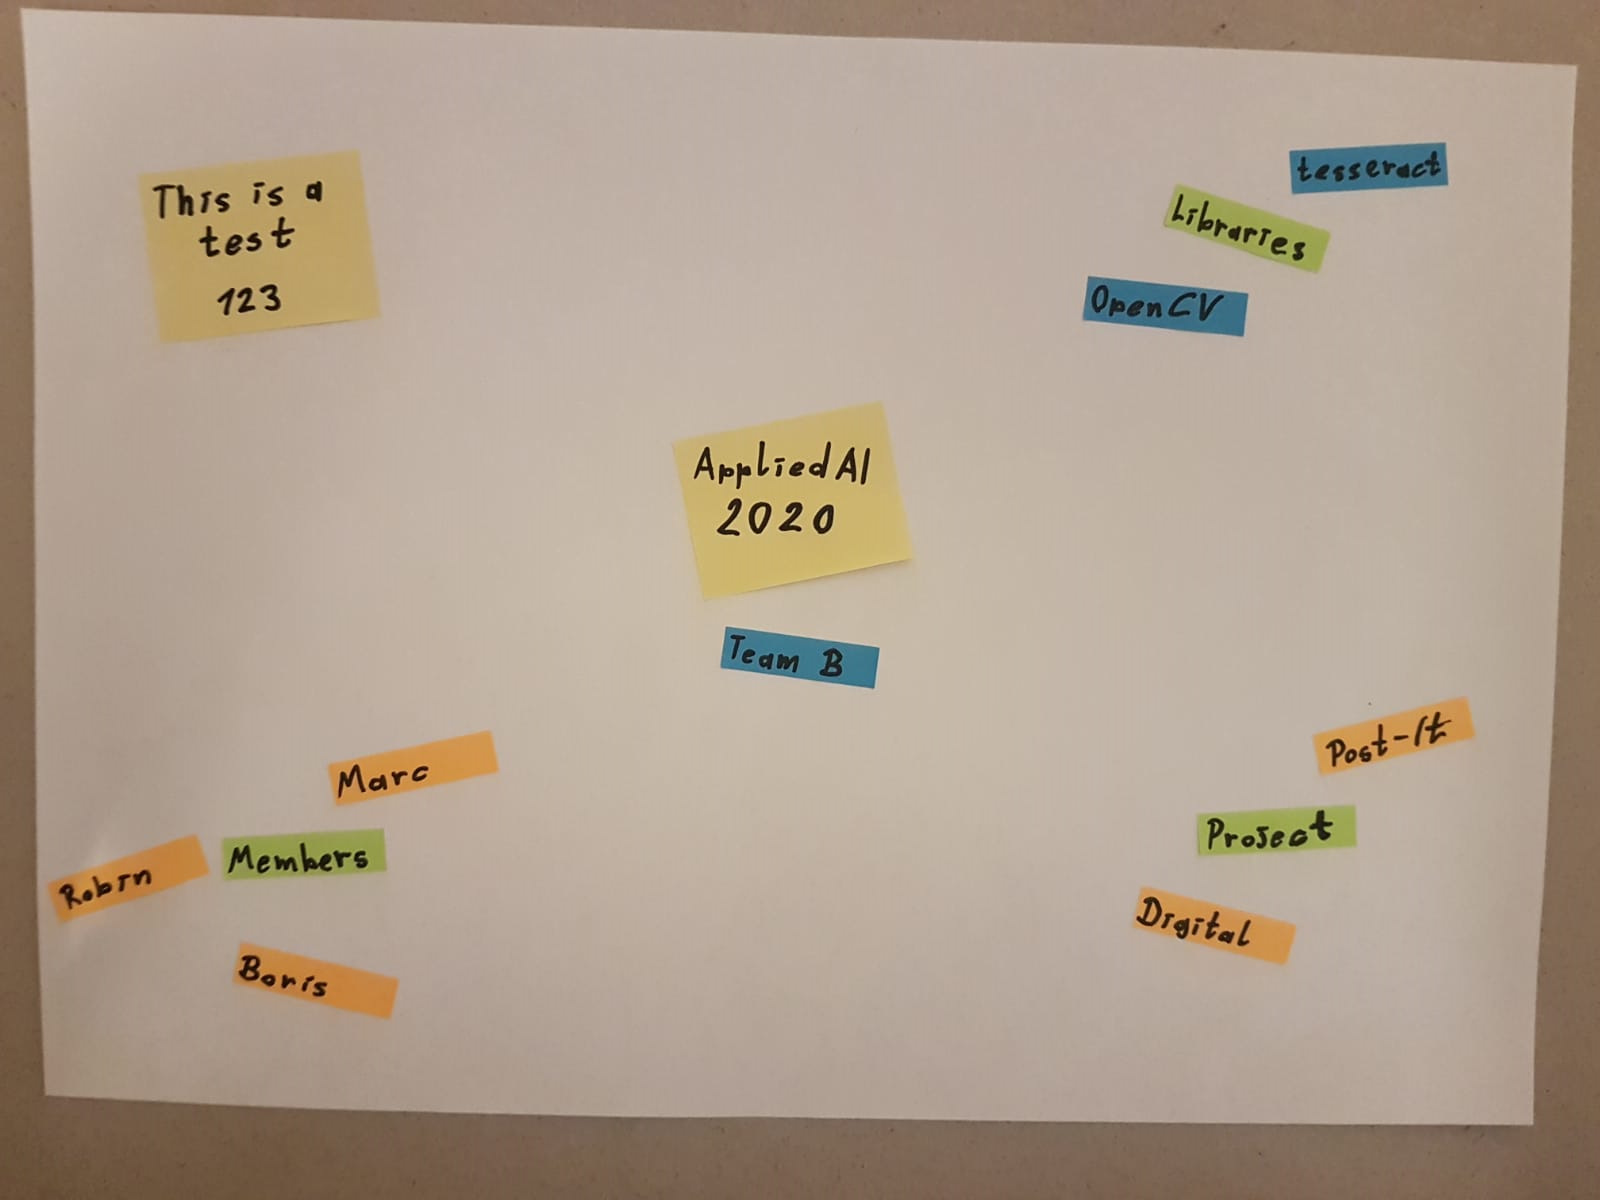 This is a
test
123
tesseract
Libraries
OpenCV
Applied AI
2020
Team B
Marc
Members
Robin
Boris
Post-It
Project
Digital